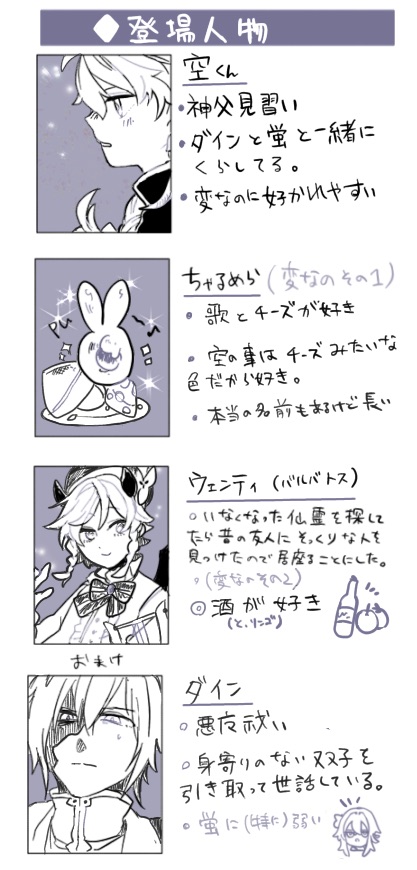 ◆登場人物
空くん
・神父見習い
・ダインと蛍と一緒に
くらしてる。
・変なのに好かれやすい
ちゃるめら(変なのその1)
・歌とチーズが好き
・空の事はチーズみたいな
色だから好き。
・本当の名前もあるけど長い
ウェンティ(バルバトス)
○いなくなった仙霊を探して
たら昔の友人にそっくりなんを
見つけたので居座ることにした。
○(変なのその2)
◎酒が好き
(と、リンゴ)
おまけ
ダイン
○悪魔祓い
○身寄りのない双子を
引き取って世話している。
・蛍に(特に)弱い